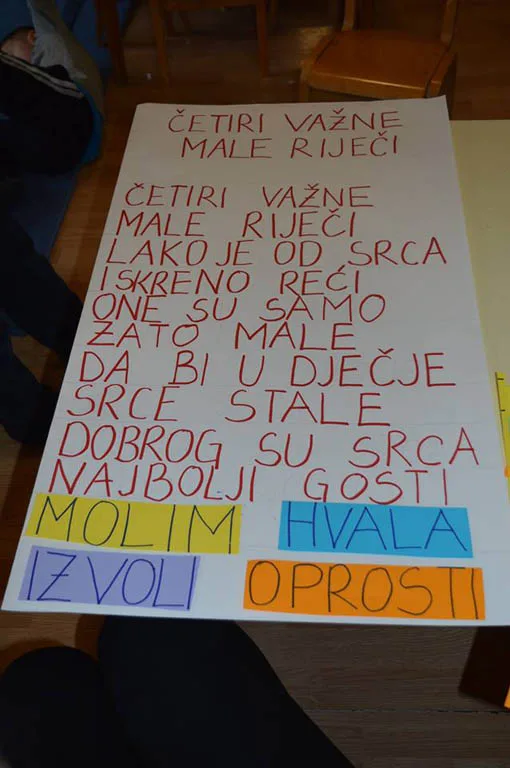 ČETIRI VAŽNE
MALE RIJEČI
ČETIRI VAŽNE
MALE RIJEČI
LAKO JE OD SRCA
ISKRENO REĆI
ONE SU SAMO
ZATO MALE
DA BI U DJEČJE
SRCE STALE
DOBROG SU SRCA
NAJBOLJI GOSTI
MOLIM HVALA
IZVOLI OPROSTI